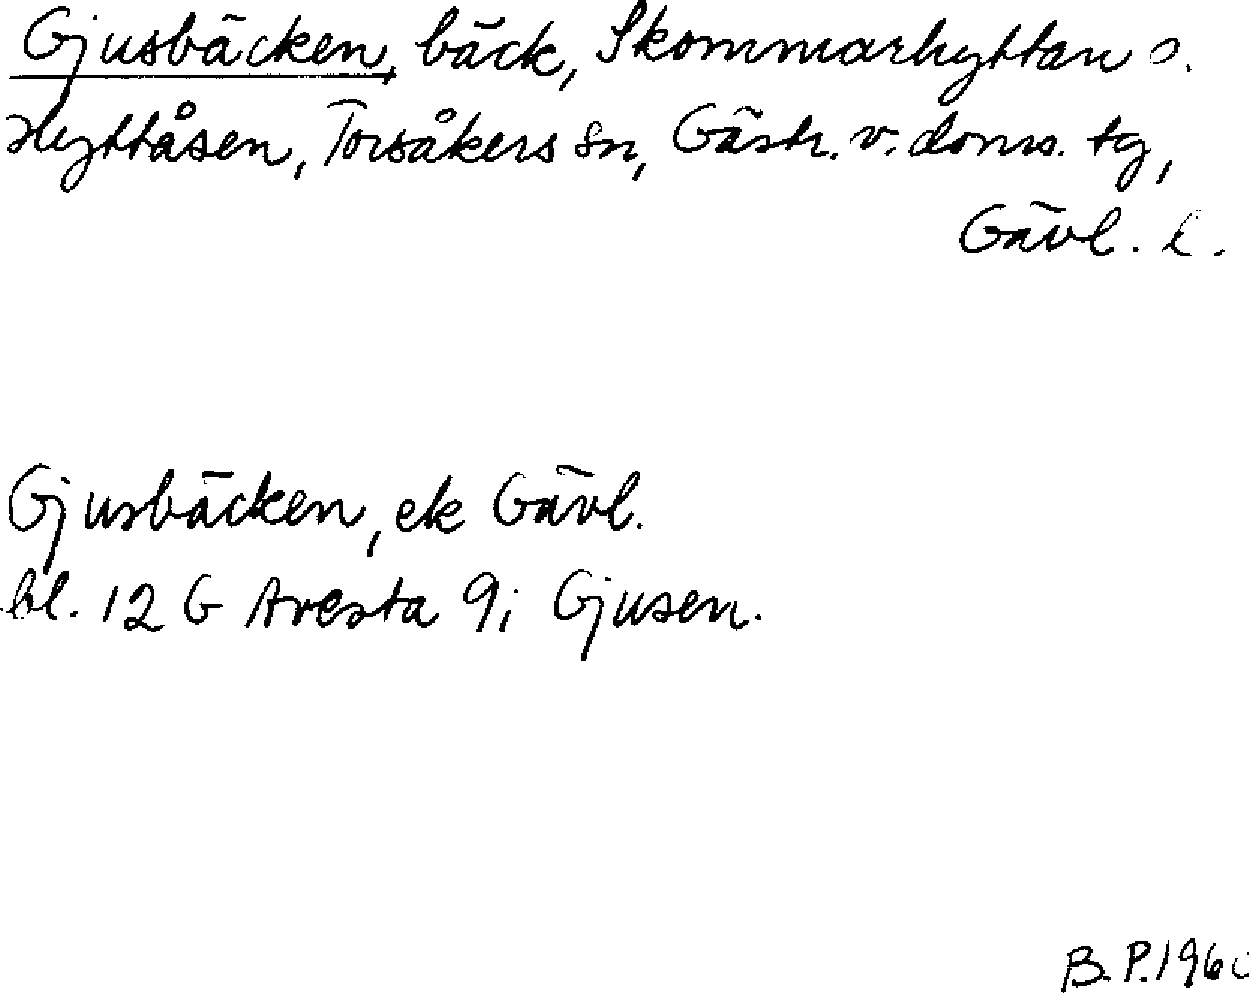 Gjusbäcken, bäck, Skommarhyttan o.
Hyttåsen, Torsåkers sn, Gästr. v. doms. tg,
Gävl. l.
Gjusbäcken, ek Gävl.
bl. 12 G Avesta 9i Gjusen.
B.P. 1960